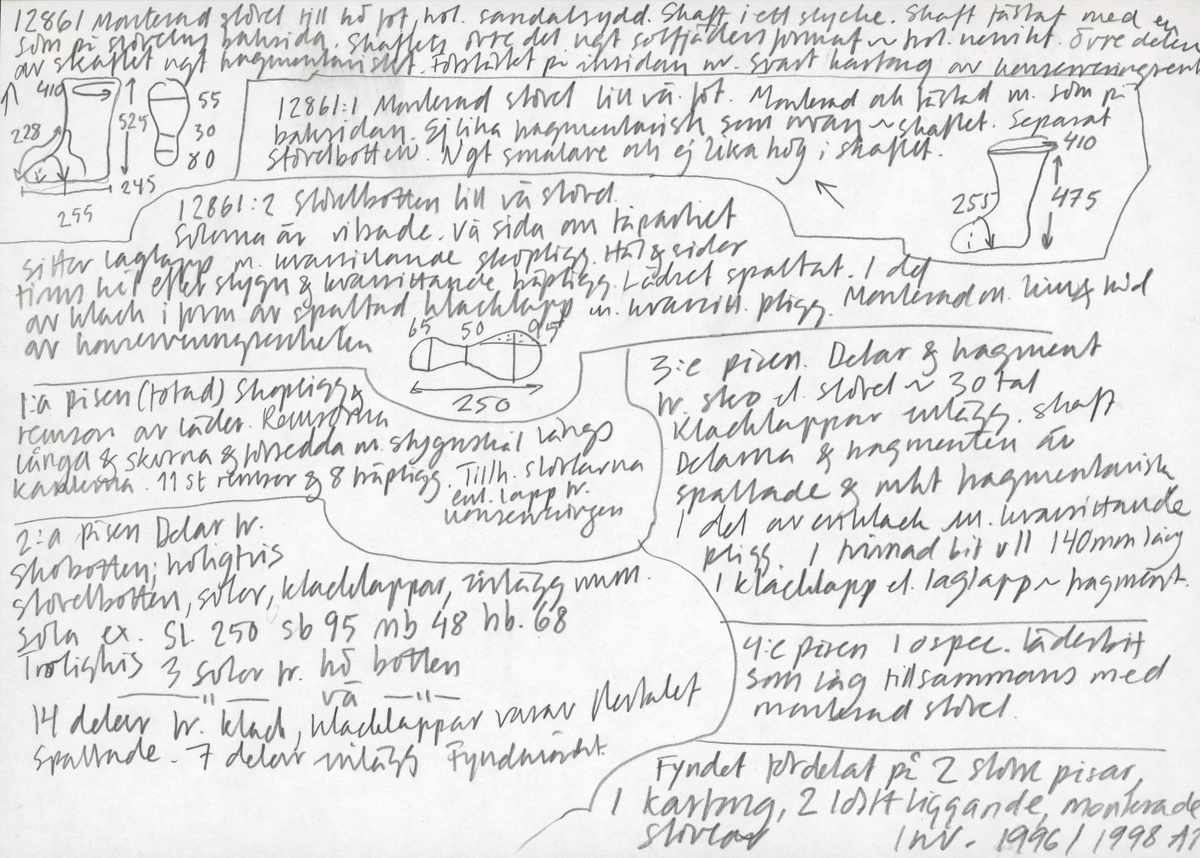 12861 Monterad stövel till hö fot, hol. sandalsydd. Skaft i ett stycke. Skaft fästat med en
söm på stövelns baksida. Skaftets övre del ngt solfjädersformat ~ hol. Övre delen
av skaftet ngt fragmentariskt. Förstärkt på insidan m. svart kartong av
410
228
525
245
255
55
30
80
12861:1 Monterad stövel till vä. fot. Monterad och fästad m. söm på
baksidan. Ej lika fragmentarisk som ovan ~ skaftet. Separat
stövelbotten. Ngt smalare och ej lika hög i skaftet.
410
255
475
12861:2 Stövelbotten till vä stövel.
Sulorna är vikade. Vä sida om tåpartiet
sitter laglapp m. kvarsittande skopligg. Hål & sidor
finns hål efter stygn & kvarsittande träpligg. Lädret spaltat. 1 del
av klack i form av spaltad klacklapp m. kvarsitt. pligg. Monterad m. lim & tråd
av konserveringsenheten
65 50 95
250
1:a påsen (totad) Skopligg &
remsor av läder. Remsorna
långa & skurna & försedda m. stygnshål längs
kanterna. 11 st remsor & 8 träpligg. Tillh. stövlarna
enl. lapp fr.
konserveringen
2:a påsen Delar fr.
skobotten; troligtvis
stövelbotten, sulor, klacklappar, inlägg mm.
Sula ex. Sl. 250 sb 95 mb 48 hb. 68
Troligtvis 3 sulor fr. hö botten
—"— vä —"—
14 delar fr. klack, klacklappar varav flertalet
spaltade. 7 delar inlägg Fyndmärkt
3:e påsen. Delar & fragment
fr. sko el. stövel ~ 30 tal
klacklappar inlägg. skaft
Delarna & fragmenten är
spaltade & mkt fragmentarisk
1 del av en klack m. kvarsittande
pligg 1 tvinnad bit ull 140 mm lång
1 klacklapp el. laglapp ~ fragment.
4:e påsen 1 ospec. läderbit
som låg tillsammans med
monterad stövel.
Fyndet fördelat på 2 större påsar,
1 kartong, 2 löst liggande, monterade
stövlar Inv. 1996/1998 AJ